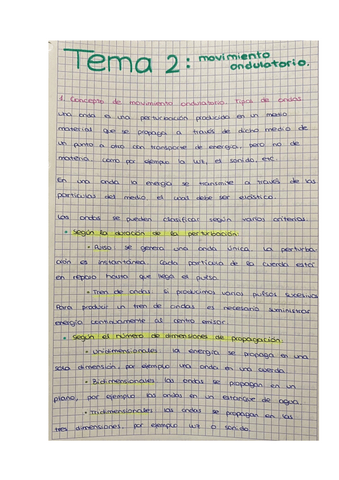 Tema 2: movimiento
ondulatorio.
1. Concepto de movimiento ondulatorio. Tipos de ondas
Una onda es una perturbación producida en un medio
material que se propaga a través de dicho medio de
un punto a otro con transporte de energía, pero no de
materia, como por ejemplo la luz, el sonido, etc.
En una onda la energía se transmite a través de las
partículas del medio el cual debe ser elástico.
Las ondas se pueden clasificar según varios criterios.
• Según la duración de la perturbación:
• Pulso se genera una onda única. La perturba
ción es instantánea. Cada partícula de la cuerda está
en reposo hasta que llega el pulso.
• Tren de ondas: si producimos varios pulsos sucesivos
Para producir un tren de ondas es necesario suministrar
energía continuamente al centro emisor.
• Según el número de dimensiones de propagación:
• Unidimensionales la energía se propaga en una
sola dimensión, por ejemplo una onda en una cuerda.
• Bidimensionales las ondas se propagan en un
plano, por ejemplo las ondas en un estanque de agua
• Tridimensionales las ondas se propagan en las
tres dimensiones, por ejemplo luz o sonido.